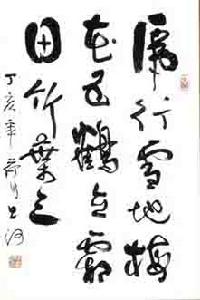 虎行雪地梅
花五鶴立霜
田竹葉三
丁亥年